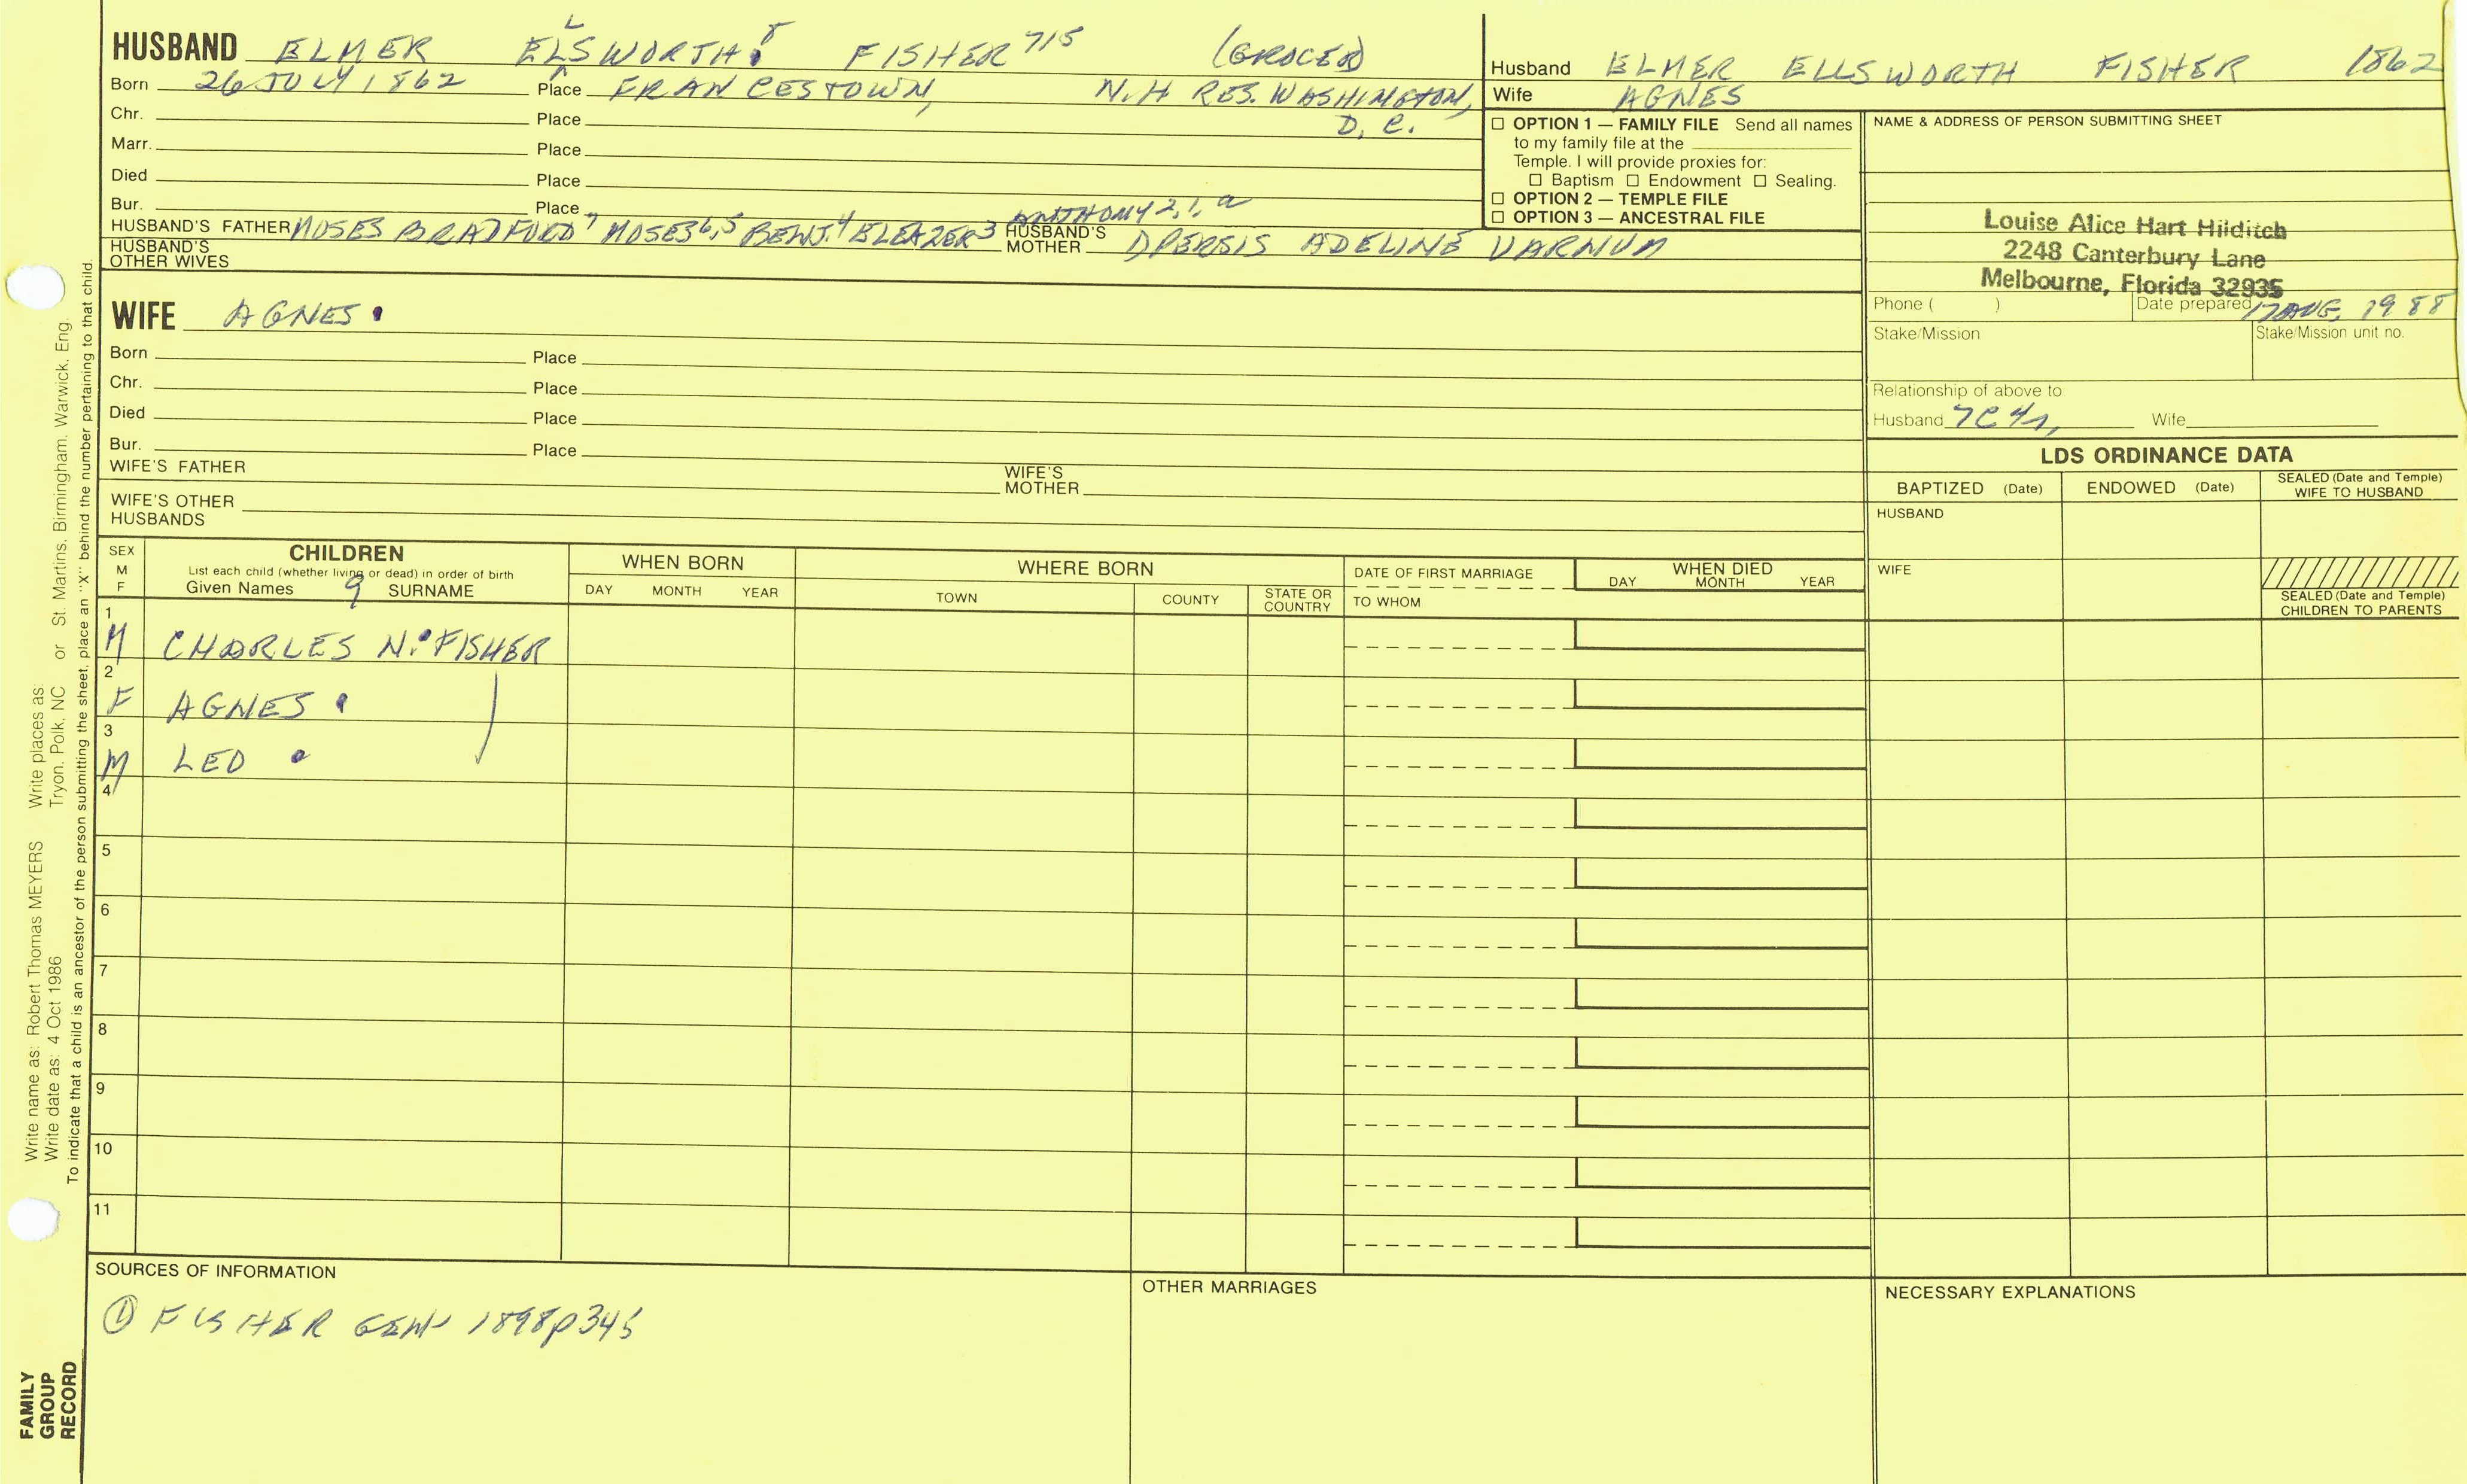 HUSBAND ELMER ELLSWORTH 8 FISHER 715 (GROCER)
Born 26 JULY 1862 Place FRANCESTOWN, N.H RES. WASHINGTON, D.C.
Chr. Place
Marr. Place
Died Place
Bur. Place
HUSBAND'S FATHER MOSES BRADFORD 7 MOSES 6,5 BENJ. 4 ELEAZER 3 ANTHONY 2,1,a HUSBAND'S MOTHER DPERSIS ADELINE VARNUM
HUSBAND'S OTHER WIVES
WIFE AGNES
Born Place
Chr. Place
Died Place
Bur. Place
WIFE'S FATHER WIFE'S MOTHER
WIFE'S OTHER HUSBANDS
Husband ELMER ELLSWORTH FISHER 1862
Wife AGNES
☐ OPTION 1 — FAMILY FILE Send all names
to my family file at the
Temple. I will provide proxies for:
☐ Baptism ☐ Endowment ☐ Sealing.
☐ OPTION 2 — TEMPLE FILE
☐ OPTION 3 — ANCESTRAL FILE
NAME & ADDRESS OF PERSON SUBMITTING SHEET
Louise Alice Hart Hilditch
2248 Canterbury Lane
Melbourne, Florida 32935
Phone ( ) Date prepared 17 AUG. 1988
Stake/Mission Stake/Mission unit no.
Relationship of above to
Husband 7C4r, Wife
LDS ORDINANCE DATA
BAPTIZED (Date) ENDOWED (Date) SEALED (Date and Temple) WIFE TO HUSBAND
HUSBAND
WIFE
SEALED (Date and Temple)
CHILDREN TO PARENTS
SEX M F
CHILDREN
List each child (whether living or dead) in order of birth
Given Names 9 SURNAME
WHEN BORN
DAY MONTH YEAR
WHERE BORN
TOWN COUNTY STATE OR COUNTRY
DATE OF FIRST MARRIAGE
TO WHOM
WHEN DIED
DAY MONTH YEAR
1 M CHARLES N. FISHER
2 F AGNES
3 M LEO
4
5
6
7
8
9
10
11
SOURCES OF INFORMATION
① FISHER GEN 1898 p345
OTHER MARRIAGES
NECESSARY EXPLANATIONS
Write name as: Robert Thomas MEYERS Write places as:
Write date as: 4 Oct 1986 Tryon, Polk, NC or St. Martins, Birmingham, Warwick, Eng.
To indicate that a child is an ancestor of the person submitting the sheet, place an "X" behind the number pertaining to that child.
FAMILY
GROUP
RECORD